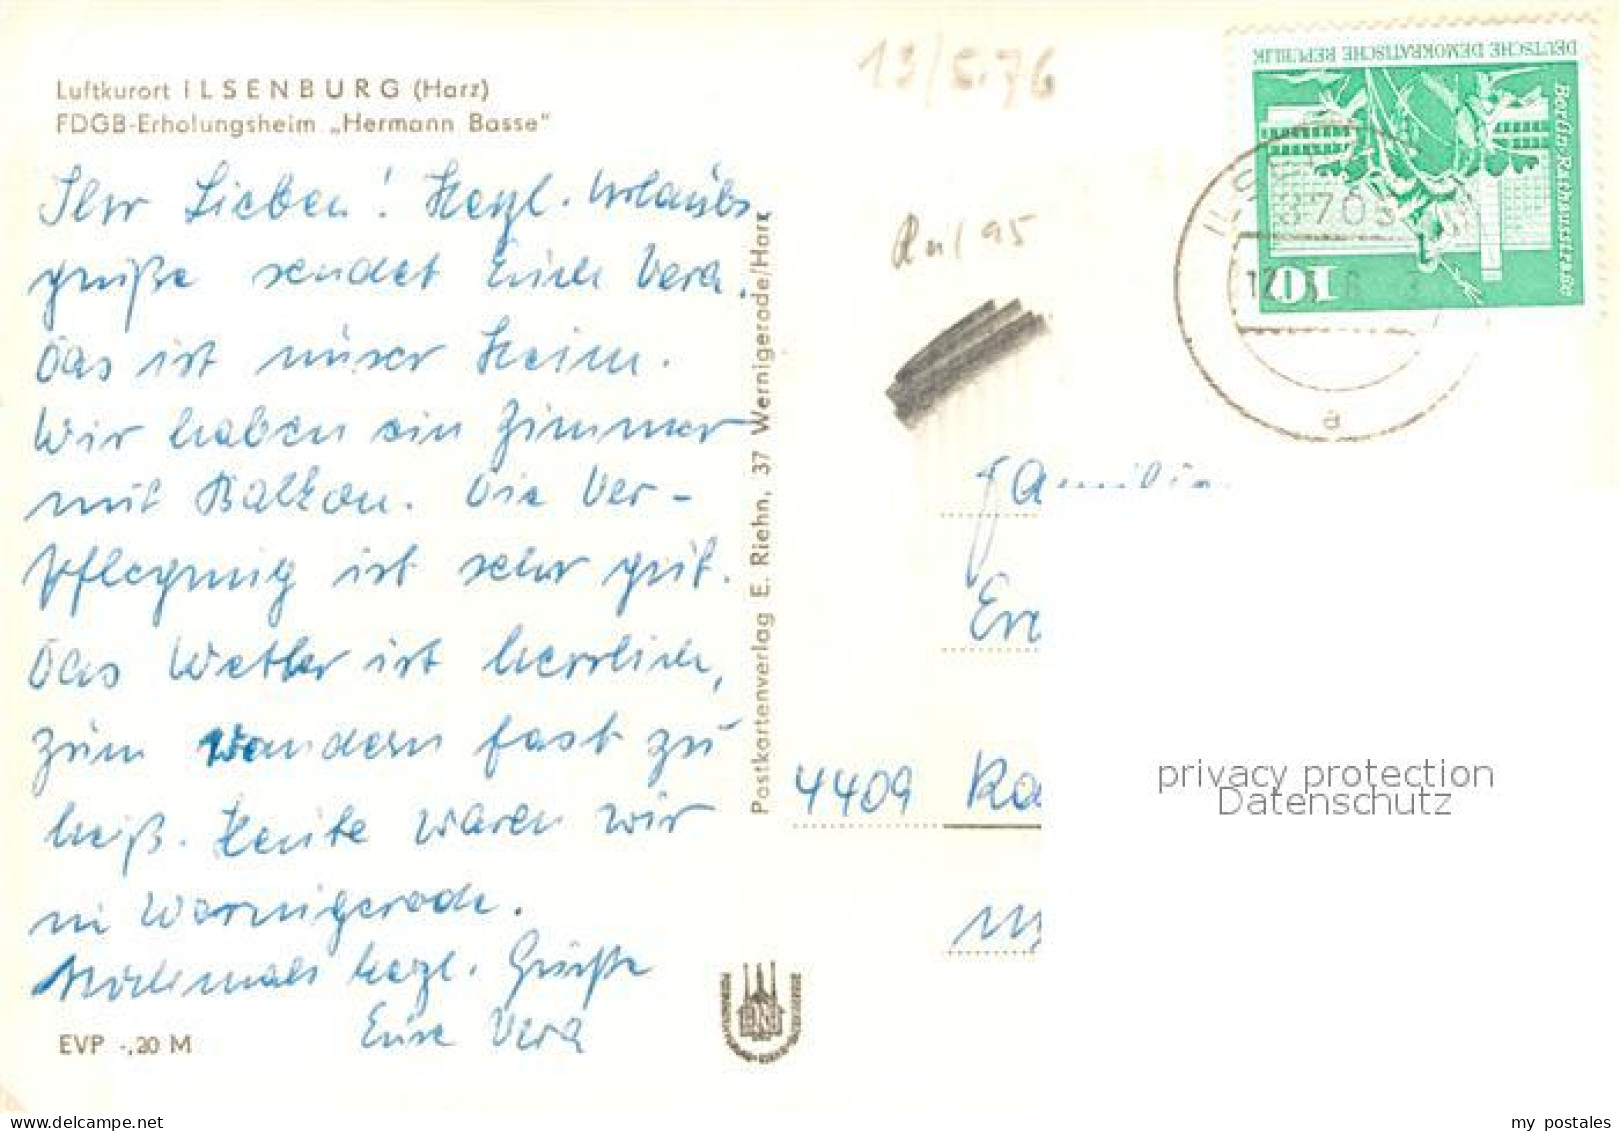 Luftkurort ILSENBURG (Harz)
FDGB-Erholungsheim „Hermann Basse"
Ihr Lieben! Herzl. Urlaubs-
grüße sendet Euch Vera.
Das ist unser Heim.
Wir haben ein Zimmer
mit Balkon. Die Ver-
pflegung ist sehr gut.
Das Wetter ist herrlich,
zum Wandern fast zu
heiß. Heute waren wir
in Wernigerode.
Nochmals herzl. Grüße
Eure Vera
EVP -,20 M
Postkartenverlag E. Riehn, 37 Wernigerode/Harz
13/5.76
95
DEUTSCHE DEMOKRATISCHE REPUBLIK
Berlin-Rathausstraße
10
3705
a
Familie
4409
privacy protection
Datenschutz
www.delcampe.net
my_postales